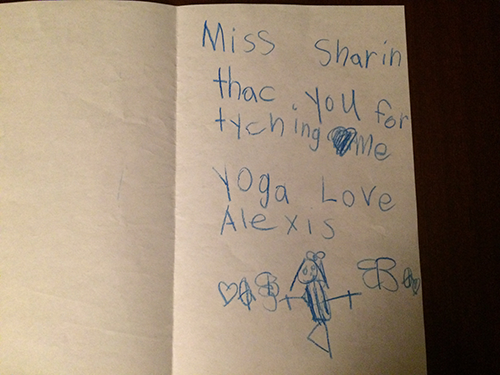 Miss Sharin
thac you for
tyching me
yoga Love
Alexis